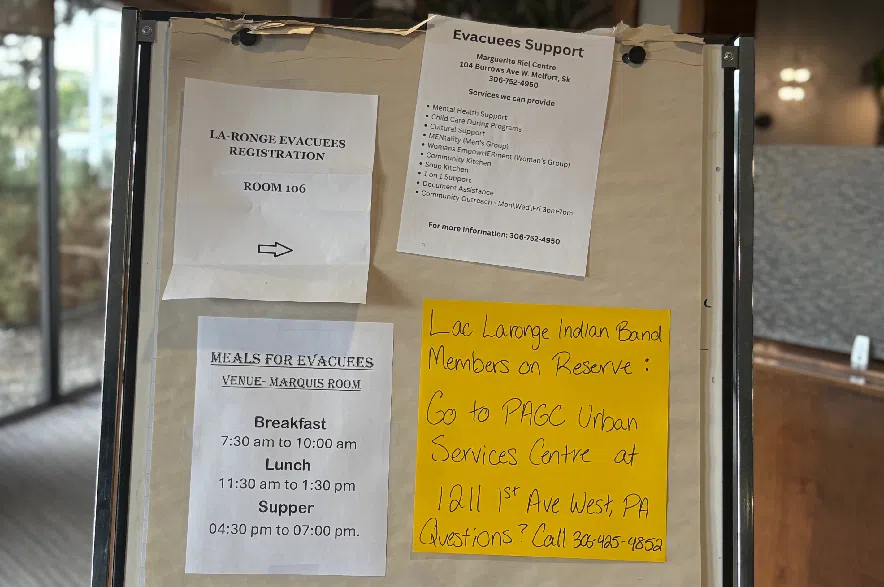 LA-RONGE EVACUEES
REGISTRATION
ROOM 106
Evacuees Support
Marguerite Riel Centre
104 Burrows Ave W. Melfort, Sk
306-752-4950
Services we can provide
• Mental Health Support
• Child Care During Programs
• Cultural Support
• MENtality (Men's Group)
• Womans EmpowHERment (Woman's Group)
• Community Kitchen
• Soup Kitchen
• 1 on 1 Support
• Document Assistance
• Community Outreach - Mon,Wed,Fri 3pm-7pm
For more information: 306-752-4950
MEALS FOR EVACUEES
VENUE- MARQUIS ROOM
Breakfast
7:30 am to 10:00 am
Lunch
11:30 am to 1:30 pm
Supper
04:30 pm to 07:00 pm.
Lac Laronge Indian Band
Members on Reserve :
Go to PAGC Urban
Services Centre at
1211 1st Ave West, PA
Questions? Call 306-425-4852